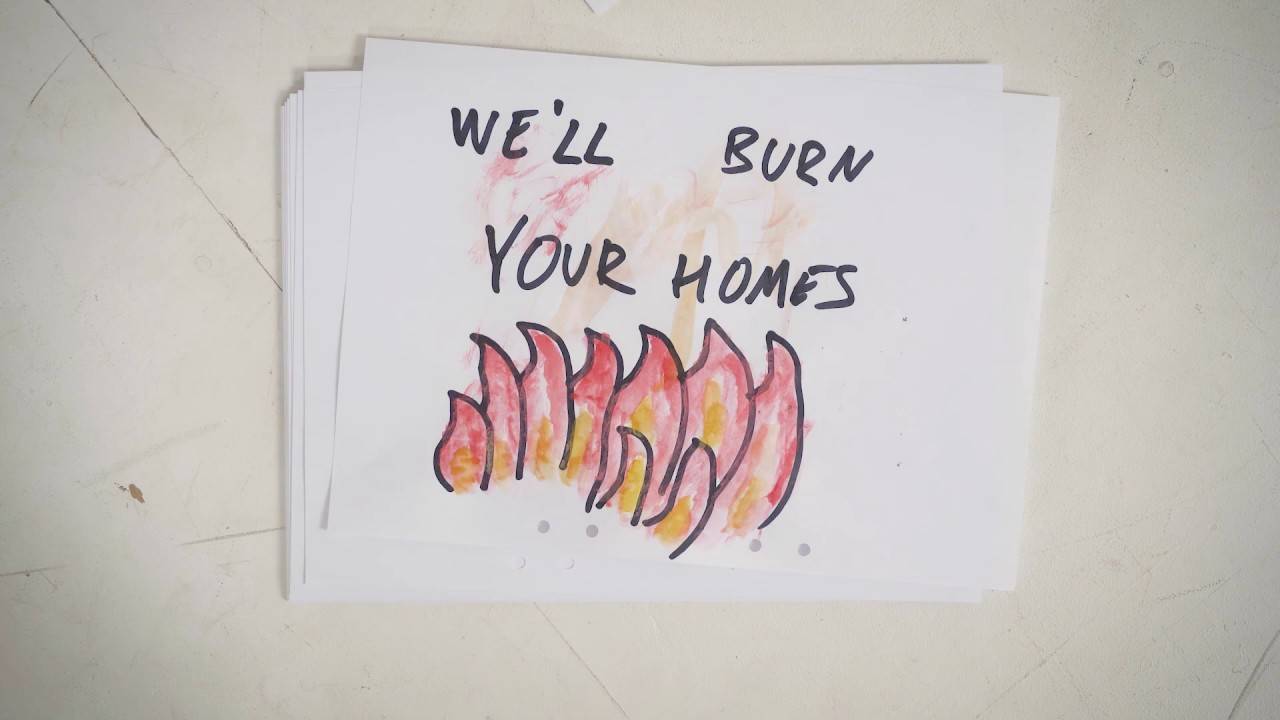 WE'LL BURN
YOUR HOMES